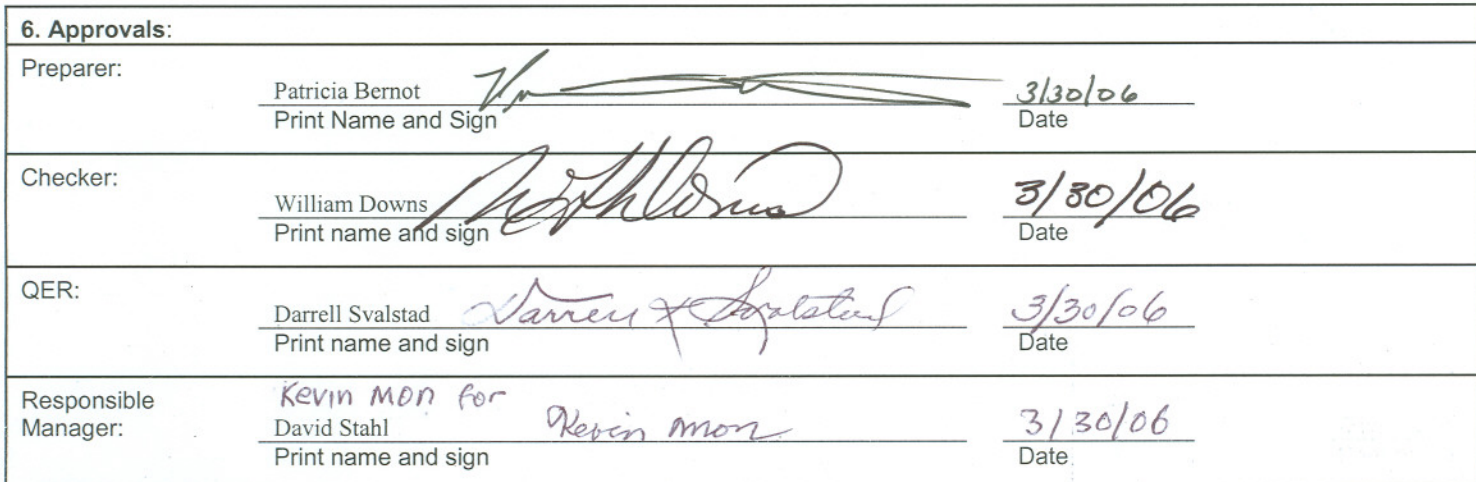 6. Approvals:
Preparer:
Patricia Bernot 3/30/06
Print Name and Sign Date
Checker:
William Downs 3/30/06
Print name and sign Date
QER:
Darrell Svalstad Darrell Svalstad 3/30/06
Print name and sign Date
Responsible Kevin Mon for
Manager: David Stahl Kevin Mon 3/30/06
Print name and sign Date